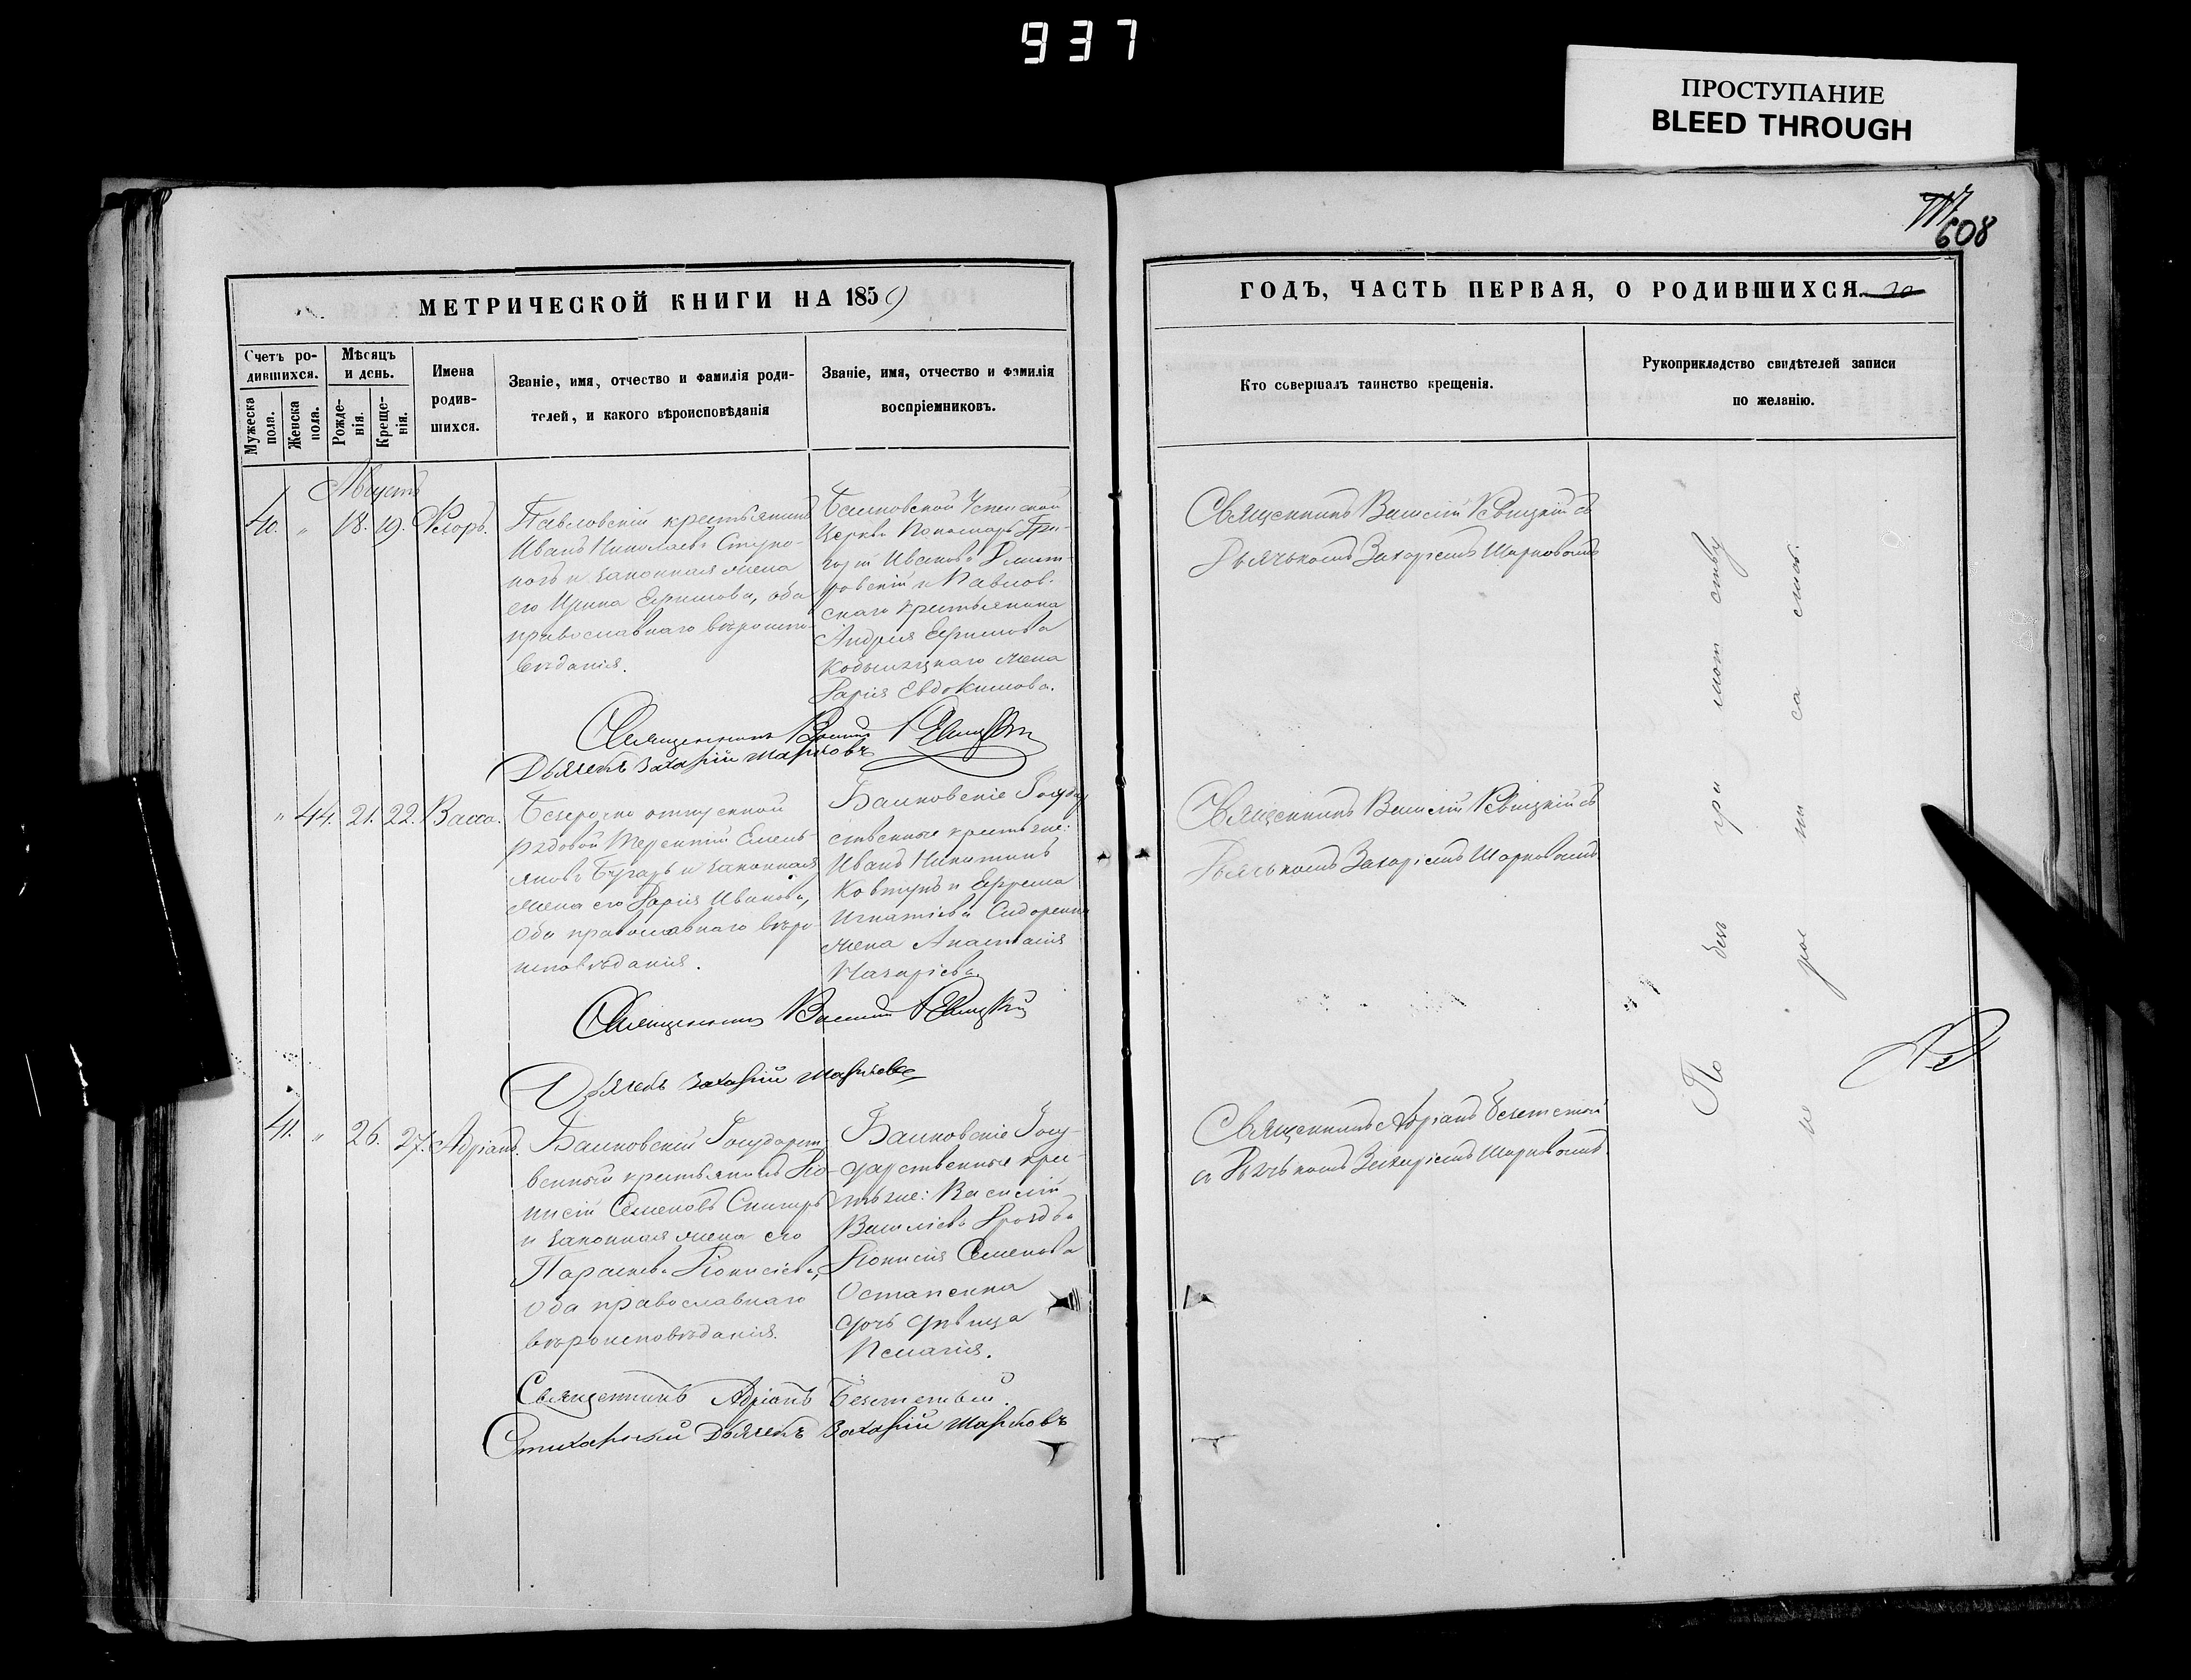 937
ПРОСТУПАНИЕ
BLEED THROUGH
608
МЕТРИЧЕСКОЙ КНИГИ НА 1859
Счетъ ро-
дившихся.
Мужеска
пола.
Женска
пола.
Мѣсяцъ
и день.
Рожде-
нія.
Креще-
нія.
Имена
родив-
шихся.
Званіе, имя, отчество и фамилія роди-
телей, и какого вѣроисповѣданія
Званіе, имя, отчество и фамилія
воспріемниковъ.
Августъ
40. " 18. 19.
Павловскій крестьянинъ
Иванъ Николаевъ
и законная жена
его Ирина Ефимова, оба
православнаго вѣроиспо-
вѣданія.
Баимовской Успенской
Церкви Пономарь Гри-
горій Ивановъ Дмит-
ровскій и Павлов-
скаго крестьянина
Андрея Ефимова
жена
Дарія Евдокимова.
Священникъ Василій
Дьячекъ Захарій Марковъ
" 44. 21. 22. Васса.
Безсрочно отпускной
рядовой Терентій Емель-
яновъ Бугарь и законная
жена его Дарія Иванова,
оба православнаго вѣро-
исповѣданія.
Баимовскіе Государ
ственные крестьяне:
Иванъ Никитинъ
Ковтунъ и Ефрема
Игнатіева Сидоренка
жена Анастасія
Назаріева.
Священникъ Василій
Дьячекъ Захарій Марковъ
41. " 26. 27. Адріанъ.
Баимовскій Государст
венный крестьянинъ Діо-
нисій Семеновъ Снигирь
и законная жена его
Параскева Діонисіева,
оба православнаго
вѣроисповѣданія.
Баимовскіе Госу-
дарственные крес-
тьяне: Василій
Васильевъ
Діонисія Семенова
Остапенка
дочь дѣвица
Пелагія.
Священникъ Адріанъ
Стихарный Дьячекъ Захарій Марковъ
ГОДЪ, ЧАСТЬ ПЕРВАЯ, О РОДИВШИХСЯ.
Кто совершалъ таинство крещенія.
Рукоприкладство свидѣтелей записи
по желанію.
Священникъ Василій съ
Дьячькомъ Захаріемъ Марковымъ
Священникъ Василій съ
Дьячькомъ Захаріемъ Марковымъ.
Священникъ Адріанъ
съ Дьячькомъ Захаріемъ Марковымъ.
По безъ гра мот ству
не рос пи са лис.